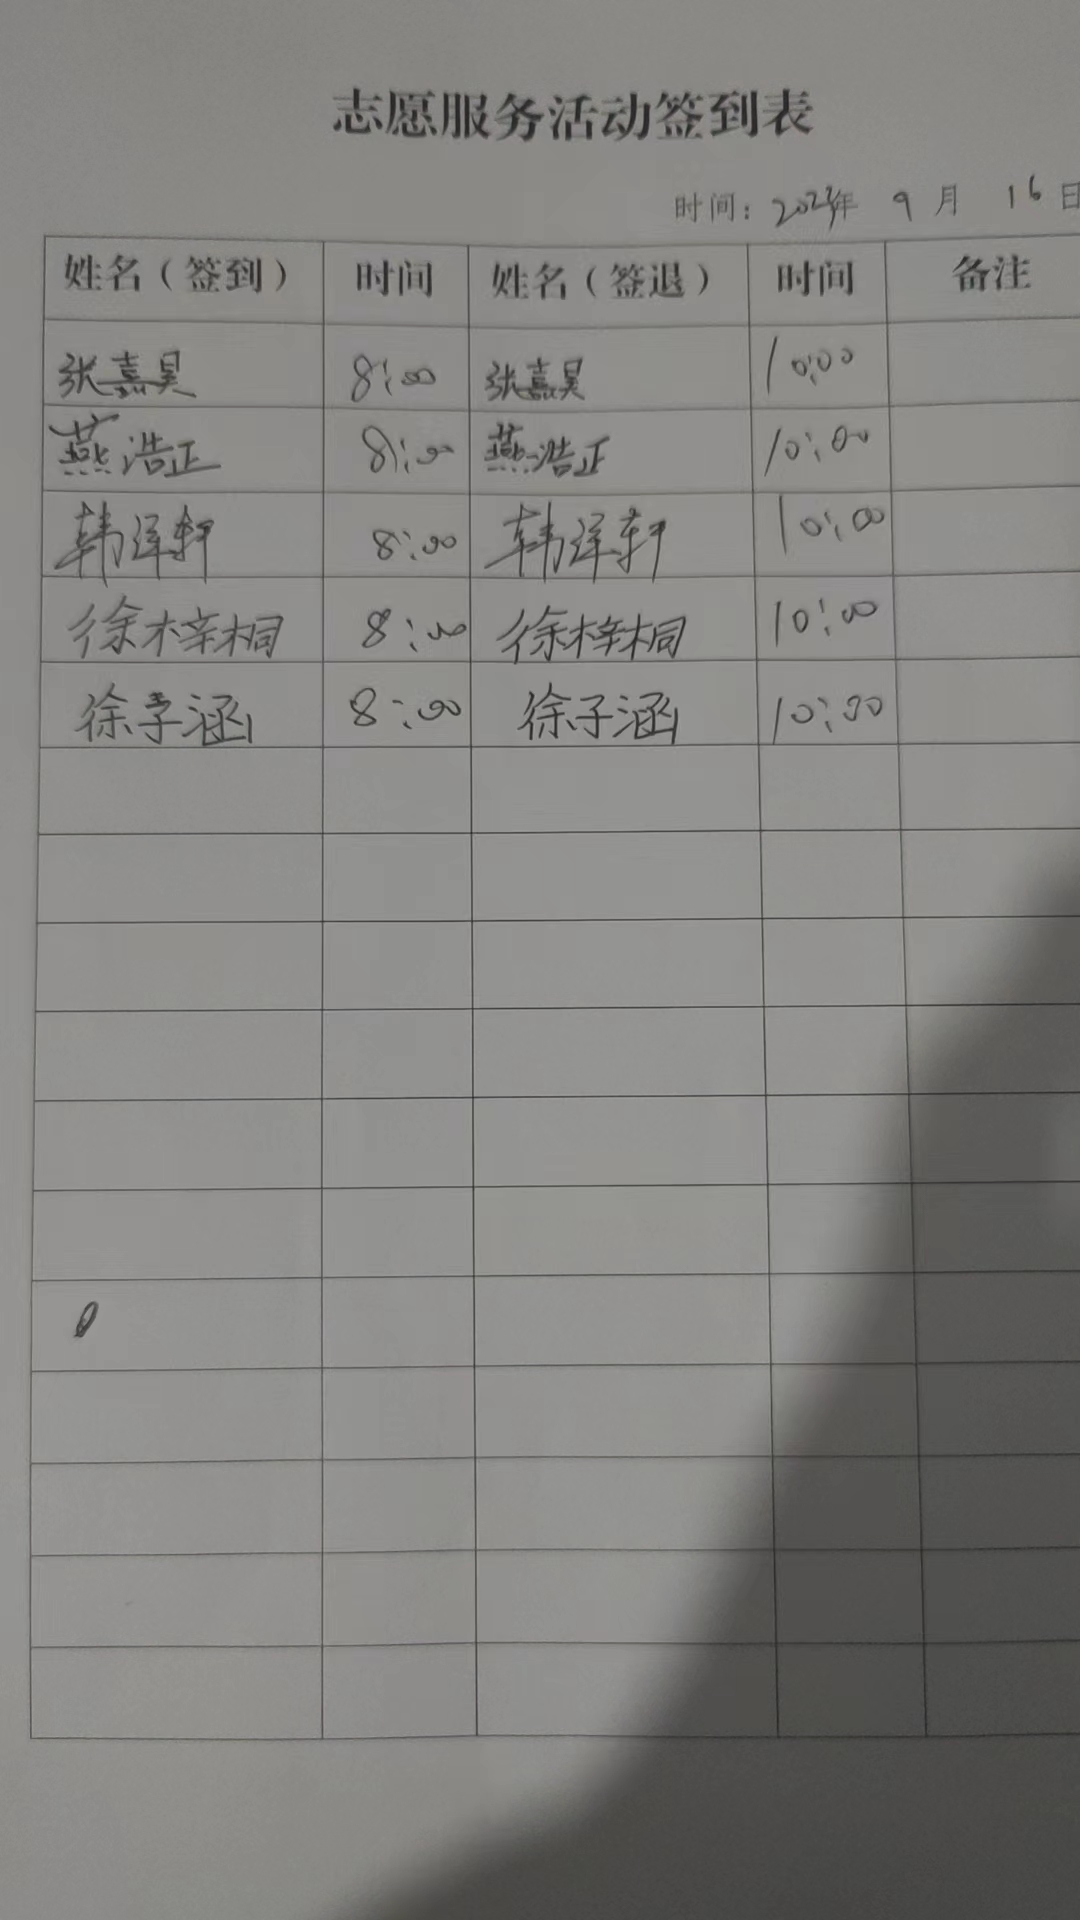 志愿服务活动签到表
时间：2023年 9月 16日
姓名（签到） 时间 姓名（签退） 时间 备注
张嘉昊 8:00 张嘉昊 10:00
燕浩正 8:00 燕浩正 10:00
韩泽轩 8:00 韩泽轩 10:00
徐梓桐 8:00 徐梓桐 10:00
徐子涵 8:00 徐子涵 10:00